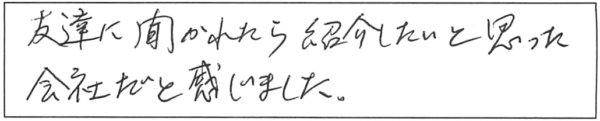 友達に聞かれたら紹介したいと思った
会社だと感じました。